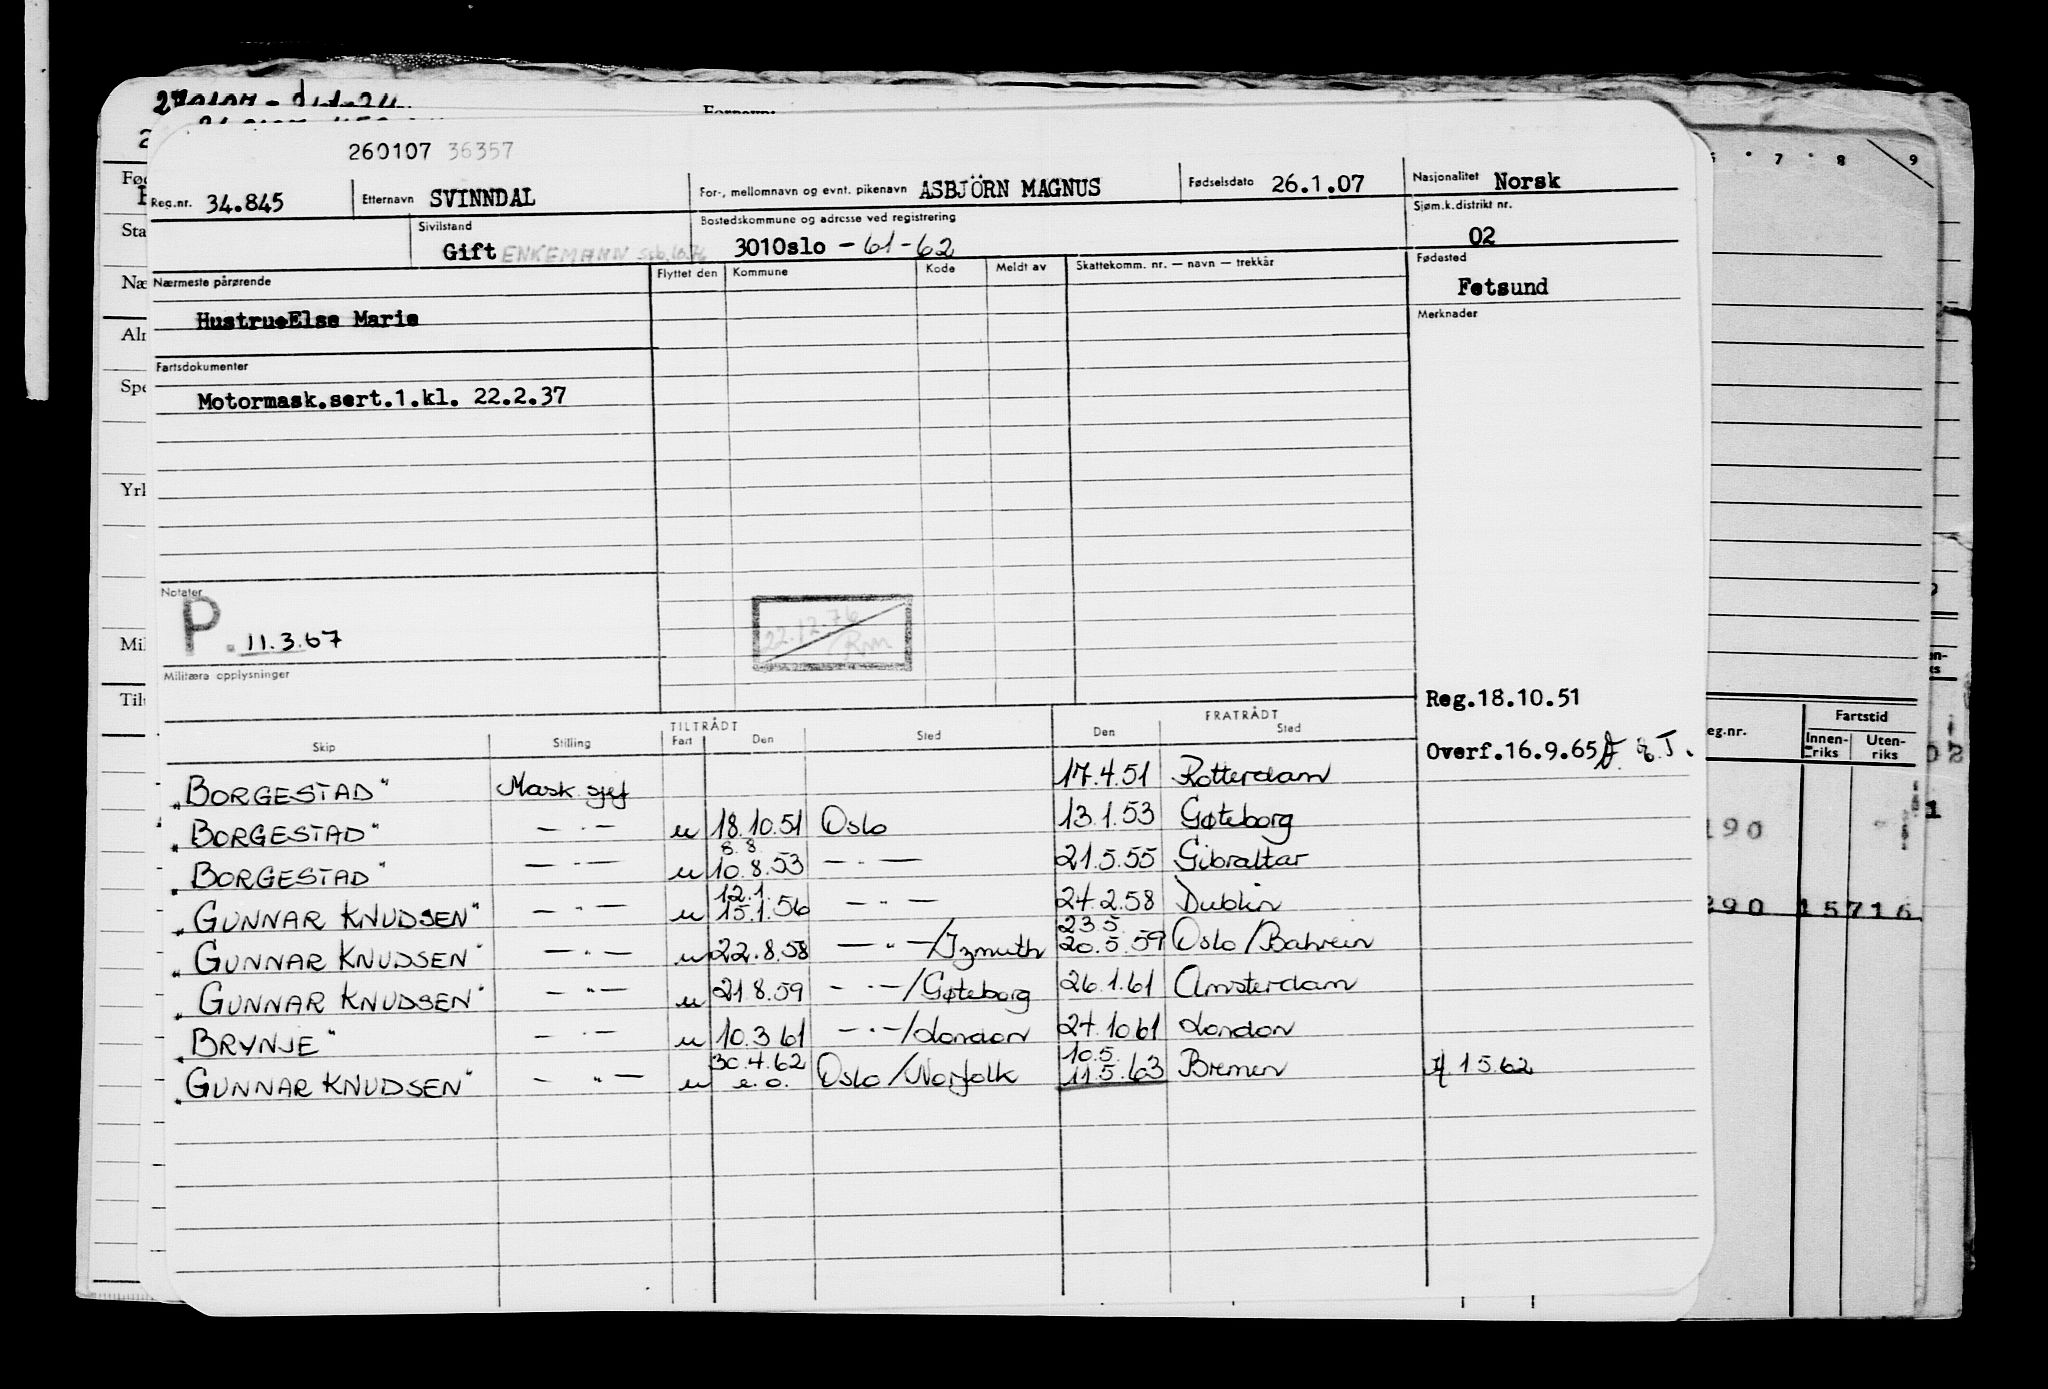 Fornavn:
260107 36357
Reg.nr. 34.845 Etternavn SVINNDAL For-, mellomnavn og evnt. pikenavn ASBJÖRN MAGNUS Fødselsdato 26.1.07 Nasjonalitet Norsk
Sivilstand Gift ENKEMANN Bostedskommune og adresse ved registrering 301Oslo - 61-62 Sjøm.k.distrikt nr. 02
Nærmeste pårørende Flyttet den Kommune Kode Meldt av Skattekomm. nr. — navn — trekkår Fødested Fetsund
HustrueElse Marie Merknader
Fartsdokumenter
Motormask.sert.1.kl. 22.2.37
Notater
P. 11.3.67 22.12.76 Rm
Militære opplysninger
Reg.18.10.51
TILTRÅDT FRATRÅDT
Skip Stilling Fart Den Sted Den Sted
Overf.16.9.65
„BORGESTAD" Mask.sjef 17.4.51 Rotterdam
„BORGESTAD" — " — u 18.10.51 Oslo 13.1.53 Gøteborg
8.8
„BORGESTAD" — " — u 10.8.53 — " — 21.5.55 Gibraltar
12.1.
„GUNNAR KNUDSEN" — " — u 15.1.56 — " — 24.2.58 Dublin
23.5.
„GUNNAR KNUDSEN" — " — u 22.8.58 — " —/Izmuth 20.5.59 Oslo/Bahrein
„GUNNAR KNUDSEN" — " — u 21.8.59 — " —/Gøteborg 26.1.61 Amsterdam
„BRYNJE" — " — u 10.3.61 — " —/London 24.10.61 London
30.4.62 10.5.
„GUNNAR KNUDSEN" — " — u e.o. Oslo/Norfolk 11.5.63 Bremen 1.5.62
7 8 9
eg.nr. Fartstid
Innen-riks Uten-riks
190
290 15716